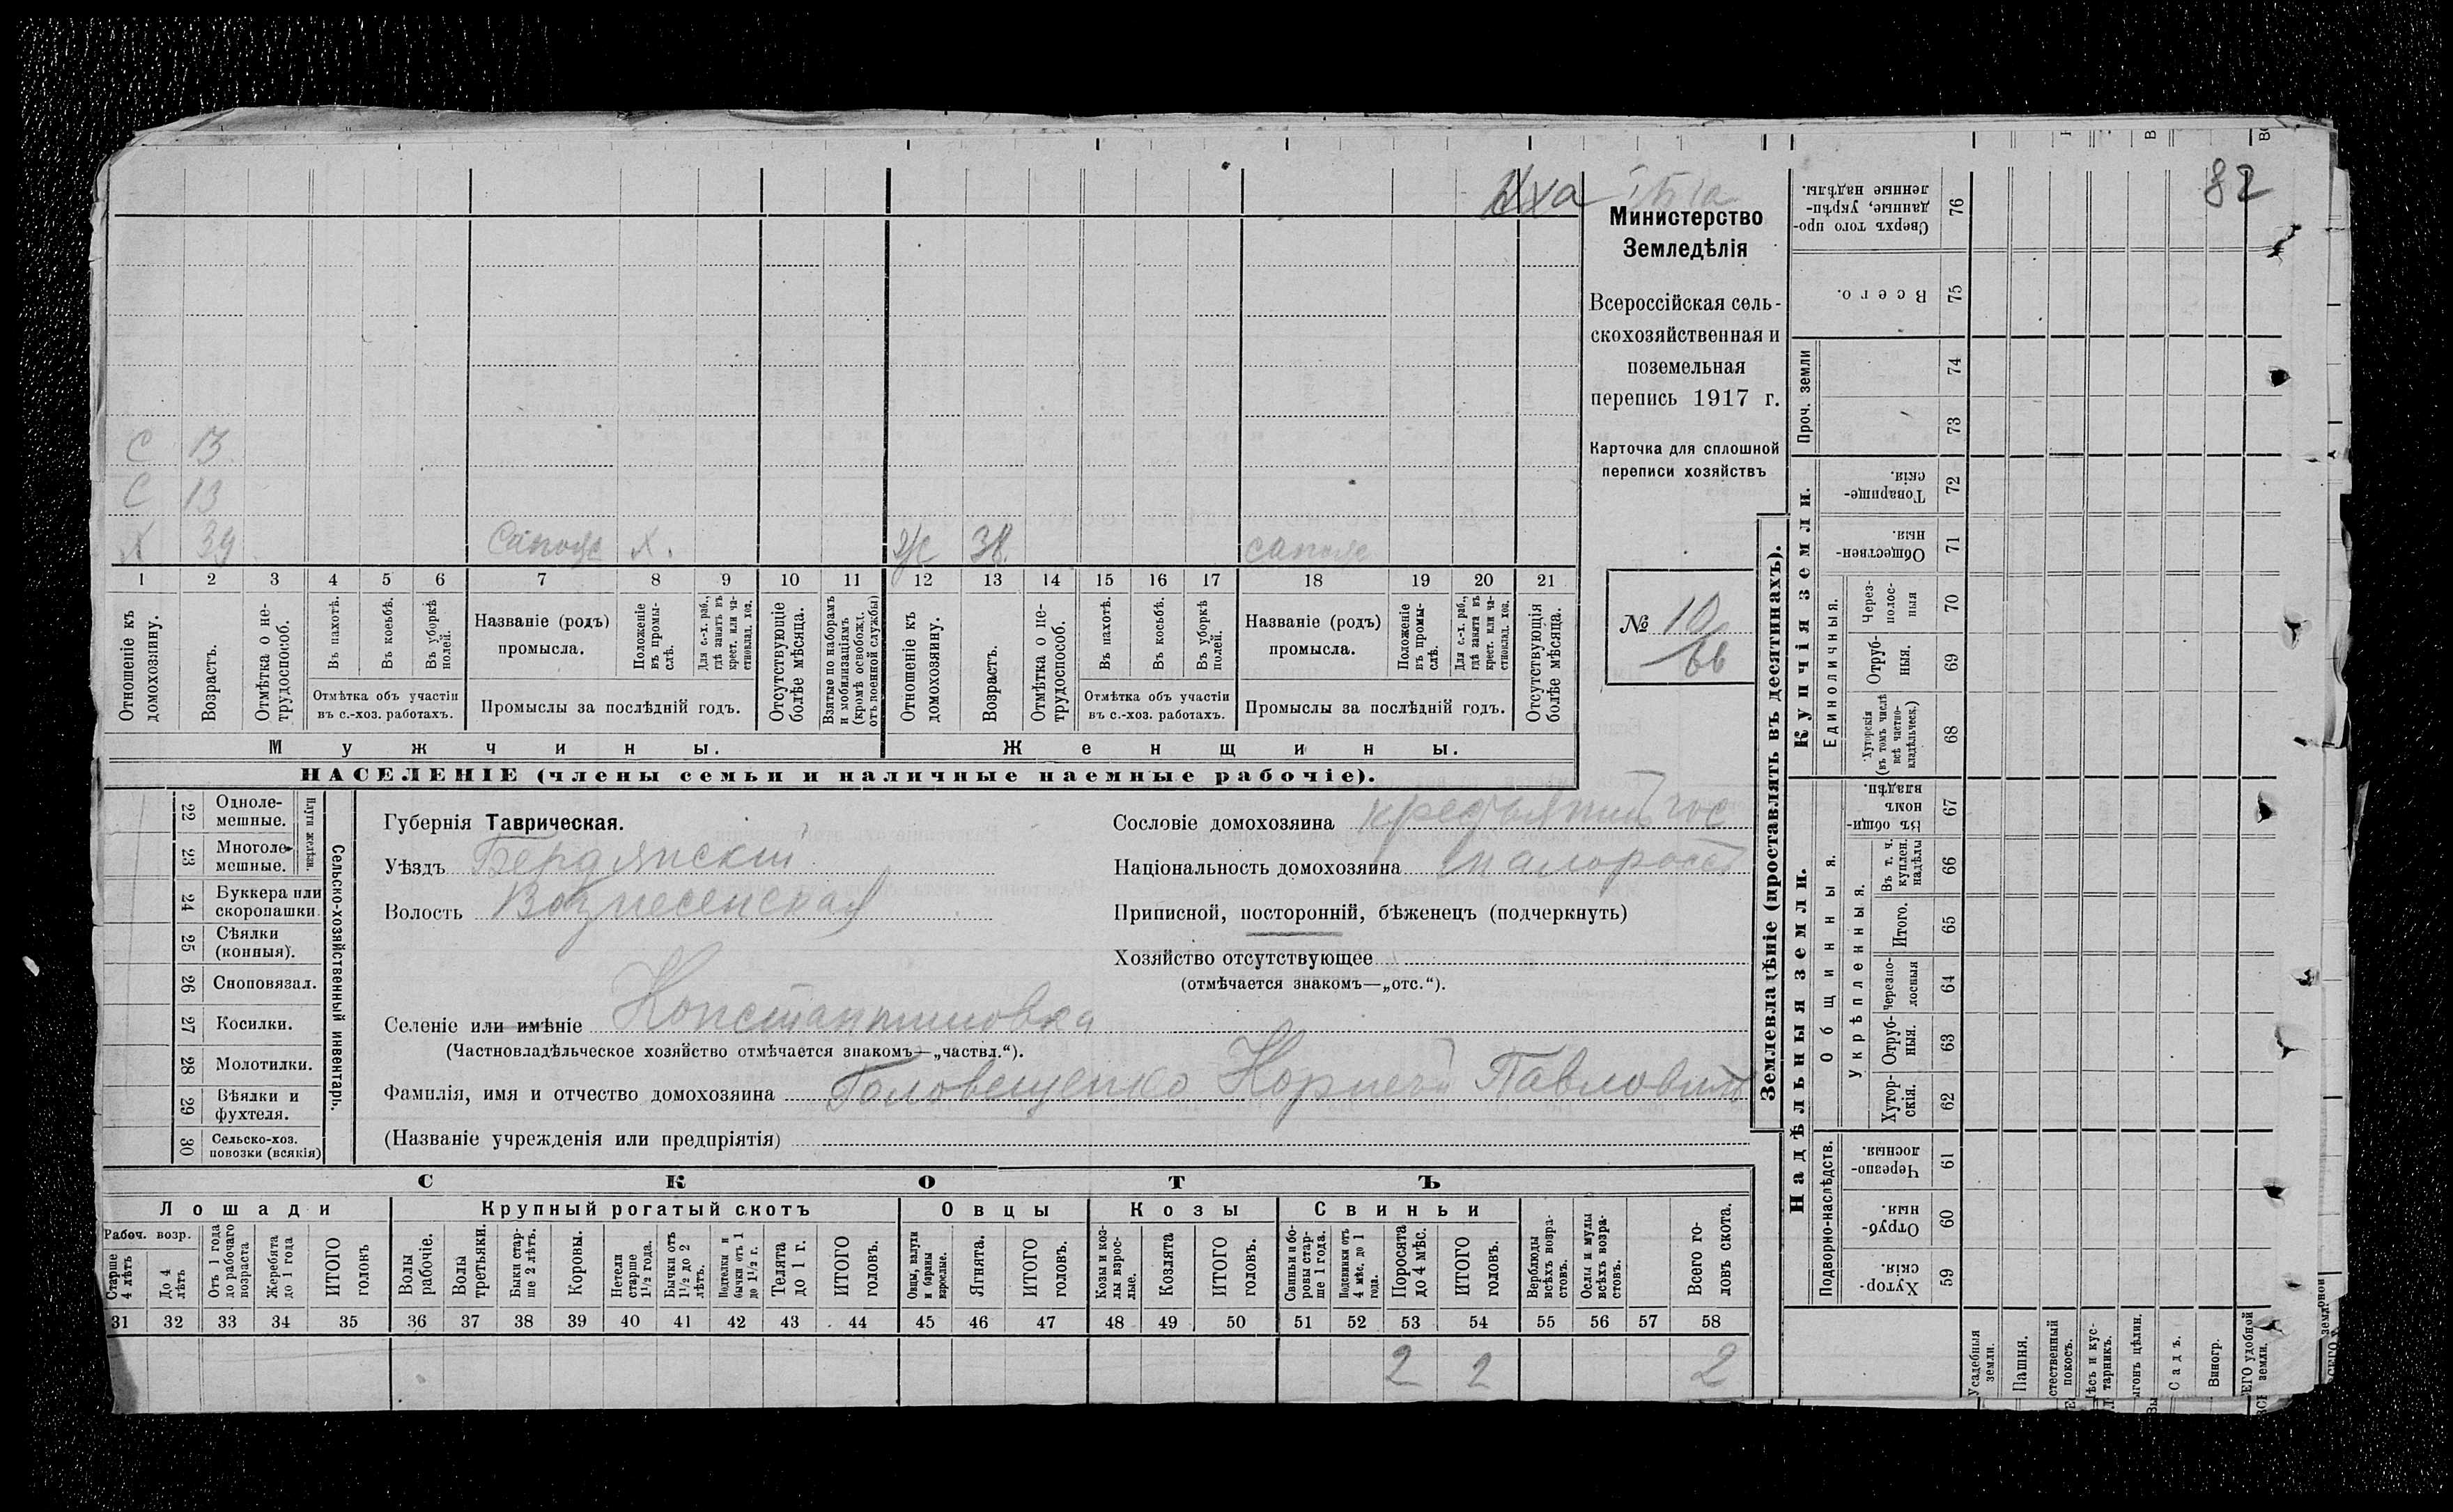 82
Министерство
Земледѣлія
Всероссійская сель-
скохозяйственная и
поземельная
перепись 1917 г.
Карточка для сплошной
переписи хозяйствъ
№ 10
66
С 13
С 13
Х 39 сапож Х. ж 38. сапож
1 2 3 4 5 6 7 8 9 10 11 12 13 14 15 16 17 18 19 20 21
Отношеніе къ домохозяину.
Возрастъ.
Отмѣтка о не-трудоспособ.
Въ пахотѣ.
Въ косьбѣ.
Въ уборкѣ полей.
Отмѣтка объ участіи
въ с.-хоз. работахъ.
Названіе (родъ)
промысла.
Положеніе въ промы-слѣ.
Для с.-х. раб., гдѣ занятъ въ крест. или ча-стновлад. хоз.
Промыслы за послѣдній годъ.
Отсутствующіе болѣе мѣсяца.
Взятые по наборамъ и мобилизаціямъ (кромѣ освобожд. отъ военной службы)
Отношеніе къ домохозяину.
Возрастъ.
Отмѣтка о не-трудоспособ.
Въ пахотѣ.
Въ косьбѣ.
Въ уборкѣ полей.
Отмѣтка объ участіи
въ с.-хоз. работахъ.
Названіе (родъ)
промысла.
Положеніе въ промы-слѣ.
Для с.-х. раб., гдѣ занята въ крест. или ча-стновлад. хоз.
Промыслы за послѣдній годъ.
Отсутствующія болѣе мѣсяца.
Мужчины.
Женщины.
НАСЕЛЕНІЕ (члены семьи и наличные наемные рабочіе).
22 Одноле-мешные.
23 Многоле-мешные.
Плуги желѣзн.
24 Буккера или скоропашки
25 Сѣялки (конныя).
26 Сноповязал.
27 Косилки.
28 Молотилки.
29 Вѣялки и фухтеля.
30 Сельско-хоз. повозки (всякія)
Сельско-хозяйственный инвентарь.
Губернія Таврическая.
Уѣздъ Бердянскій
Волость Вознесенская
Сословіе домохозяина крестьянинъ
Національность домохозяина малоросс
Приписной, посторонній, бѣженецъ (подчеркнуть)
Хозяйство отсутствующее
(отмѣчается знакомъ—„отс.“).
Селеніе или имѣніе Константиновка
(Частновладѣльческое хозяйство отмѣчается знакомъ—„частвл.“).
Фамилія, имя и отчество домохозяина Головещенко Корней Павловичъ
(Названіе учрежденія или предпріятія)
СКОТЪ
Лошади
Крупный рогатый скотъ
Овцы
Козы
Свиньи
Рабоч. возр.
Старше 4 лѣтъ
До 4 лѣтъ
Отъ 1 года до рабочаго возраста
Жеребята до 1 года
ИТОГО головъ
Волы рабочіе.
Волы третьяки.
Быки стар-ше 2 лѣтъ.
Коровы.
Нетели старше 1½ года.
Бычки отъ 1½ до 2 лѣтъ.
Подтелки и бычки отъ 1 до 1½ г.
Телята до 1 г.
ИТОГО головъ.
Овцы, валухи и бараны взрослые.
Ягнята.
ИТОГО головъ.
Козы и коз-лы взрос-лые.
Козлята
ИТОГО головъ.
Свиньи и бо-ровы стар-ше 1 года.
Подсвинки отъ 4 мѣс. до 1 года.
Поросята до 4 мѣс.
ИТОГО головъ.
Верблюды всѣхъ возра-стовъ.
Ослы и мулы всѣхъ возра-стовъ.
Всего го-ловъ скота.
31 32 33 34 35 36 37 38 39 40 41 42 43 44 45 46 47 48 49 50 51 52 53 54 55 56 57 58
2 2 2
Землевладѣніе (проставлять въ десятинахъ).
Купчія земли.
Надѣльныя земли.
Сверхъ того про-данные, укрѣп-ленные надѣлы. 76
Всего. 75
Проч. земли
74
73
Товарище-скія. 72
Обществен-ныя. 71
Единоличныя.
Через-полос-ныя 70
Отруб-ныя. 69
Хуторскія (въ томъ числѣ всѣ частно-владѣльческ.) 68
Въ общин-номъ владѣн. 67
Общинныя.
Укрѣпленныя.
Въ т. ч. куплен. надѣлы 66
Итого. 65
Черезпо-лосныя 64
Отруб-ныя. 63
Хутор-скія. 62
Подворно-наслѣдств.
Черезпо-лосныя. 61
Отруб-ныя. 60
Хутор-скія. 59
Усадебныя земли.
Пашня.
стественный покосъ.
ѣсъ и кус-тарникъ.
ыгонъ цѣлин.
Садъ.
Виногр.
ЕГО удобной земли.